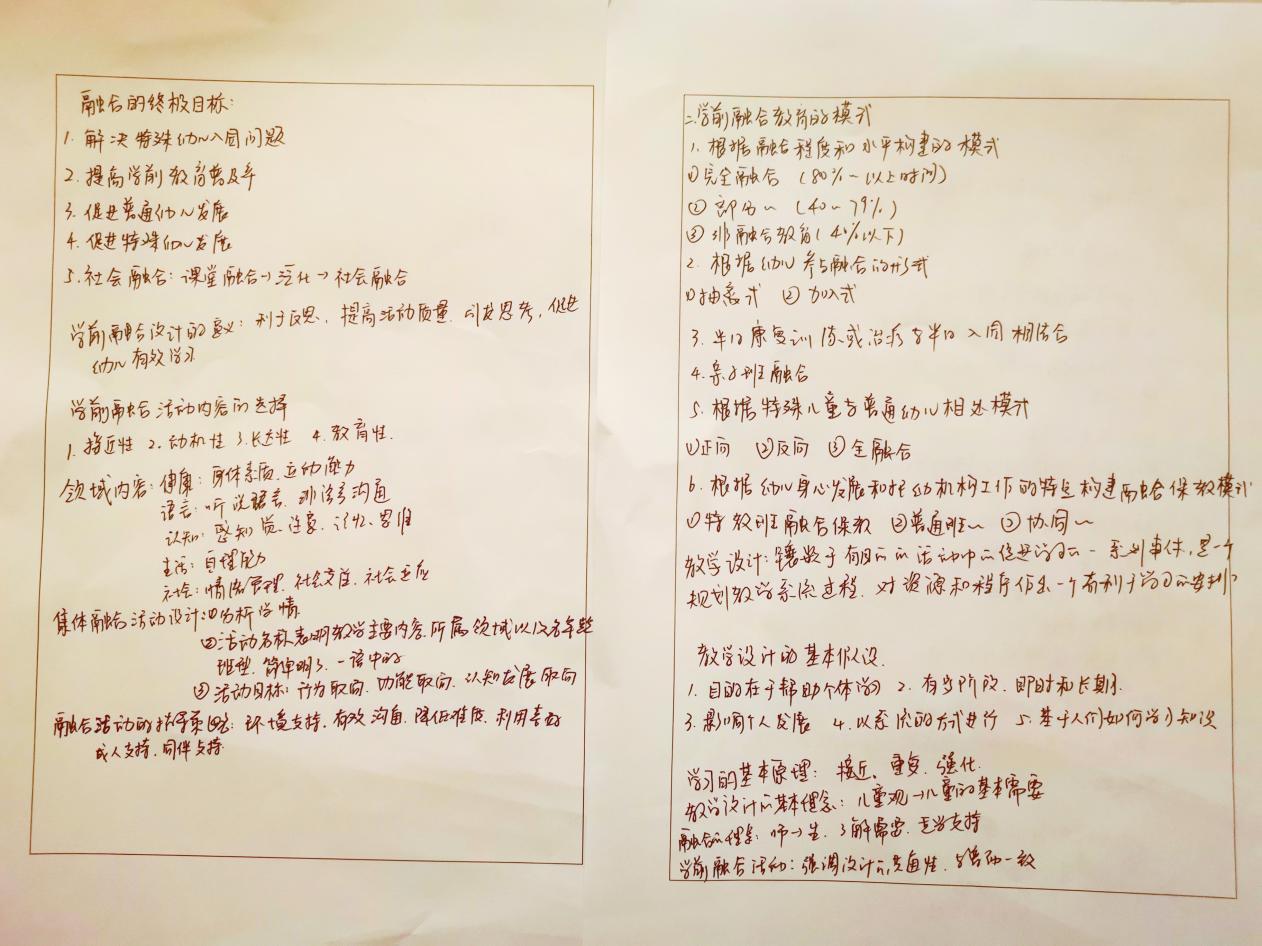 融合的终极目标:
1. 解决特殊幼儿入园问题
2. 提高学前教育普及率
3. 促进普通幼儿发展
4. 促进特殊幼儿发展
5. 社会融合: 课堂融合→泛化→社会融合
学前融合设计的意义: 利于反思, 提高活动质量, 引发思考, 促进
幼儿有效学习
学前融合活动内容的选择
1. 接近性 2. 动机性 3. 长达性 4. 教育性.
领域内容: 健康: 身体素质, 运动能力
语言: 听说语言, 非语言沟通
认知: 感知觉, 注意, 记忆, 思维
生活: 自理能力
社会: 情绪管理, 社会交往, 社会适应
集体融合活动设计: ①分析学情
②活动名称表明教学主要内容, 所属领域以及各年龄
班型, 简单明了, 一语中的
③活动目标: 行为取向, 功能取向, 认知发展取向
融合活动的指导策略: 环境支持, 有效沟通, 降低难度, 利用喜好
成人支持, 同伴支持
二、学前融合教育的模式
1. 根据融合程度和水平构建的模式
①完全融合 (80%~以上时间)
② 部分~ (40~79%)
③ 非融合教育 (40%以下)
2. 根据幼儿参与融合的形式
①抽离式 ② 加入式
3. 半日康复训练或治疗与半日入园相结合
4. 亲子班融合
5. 根据特殊儿童与普通幼儿相处模式
①正向 ②反向 ③ 全融合
6. 根据幼儿身心发展和托幼机构工作的特点构建融合保教模式
①特教班融合保教 ②普通班~ ③ 协同~
教学设计: 镶嵌于有目的的活动中的促进学习的一系列事件, 是一个
规划教学系统过程, 对资源和程序作出一个有利于学习的安排
教学设计的基本假设.
1. 目的在于帮助个体学习 2. 有步阶段, 即时和长期.
3. 影响个人发展 4. 以系统的方式进行 5. 基于人们如何学习知识
学习的基本原理: 接近, 重复, 强化.
教学设计的基本理念: 儿童观→儿童的基本需要
融合的理念: 师→生, 了解需要, 适当支持
学前融合活动: 强调设计的共通性, 与普幼一致